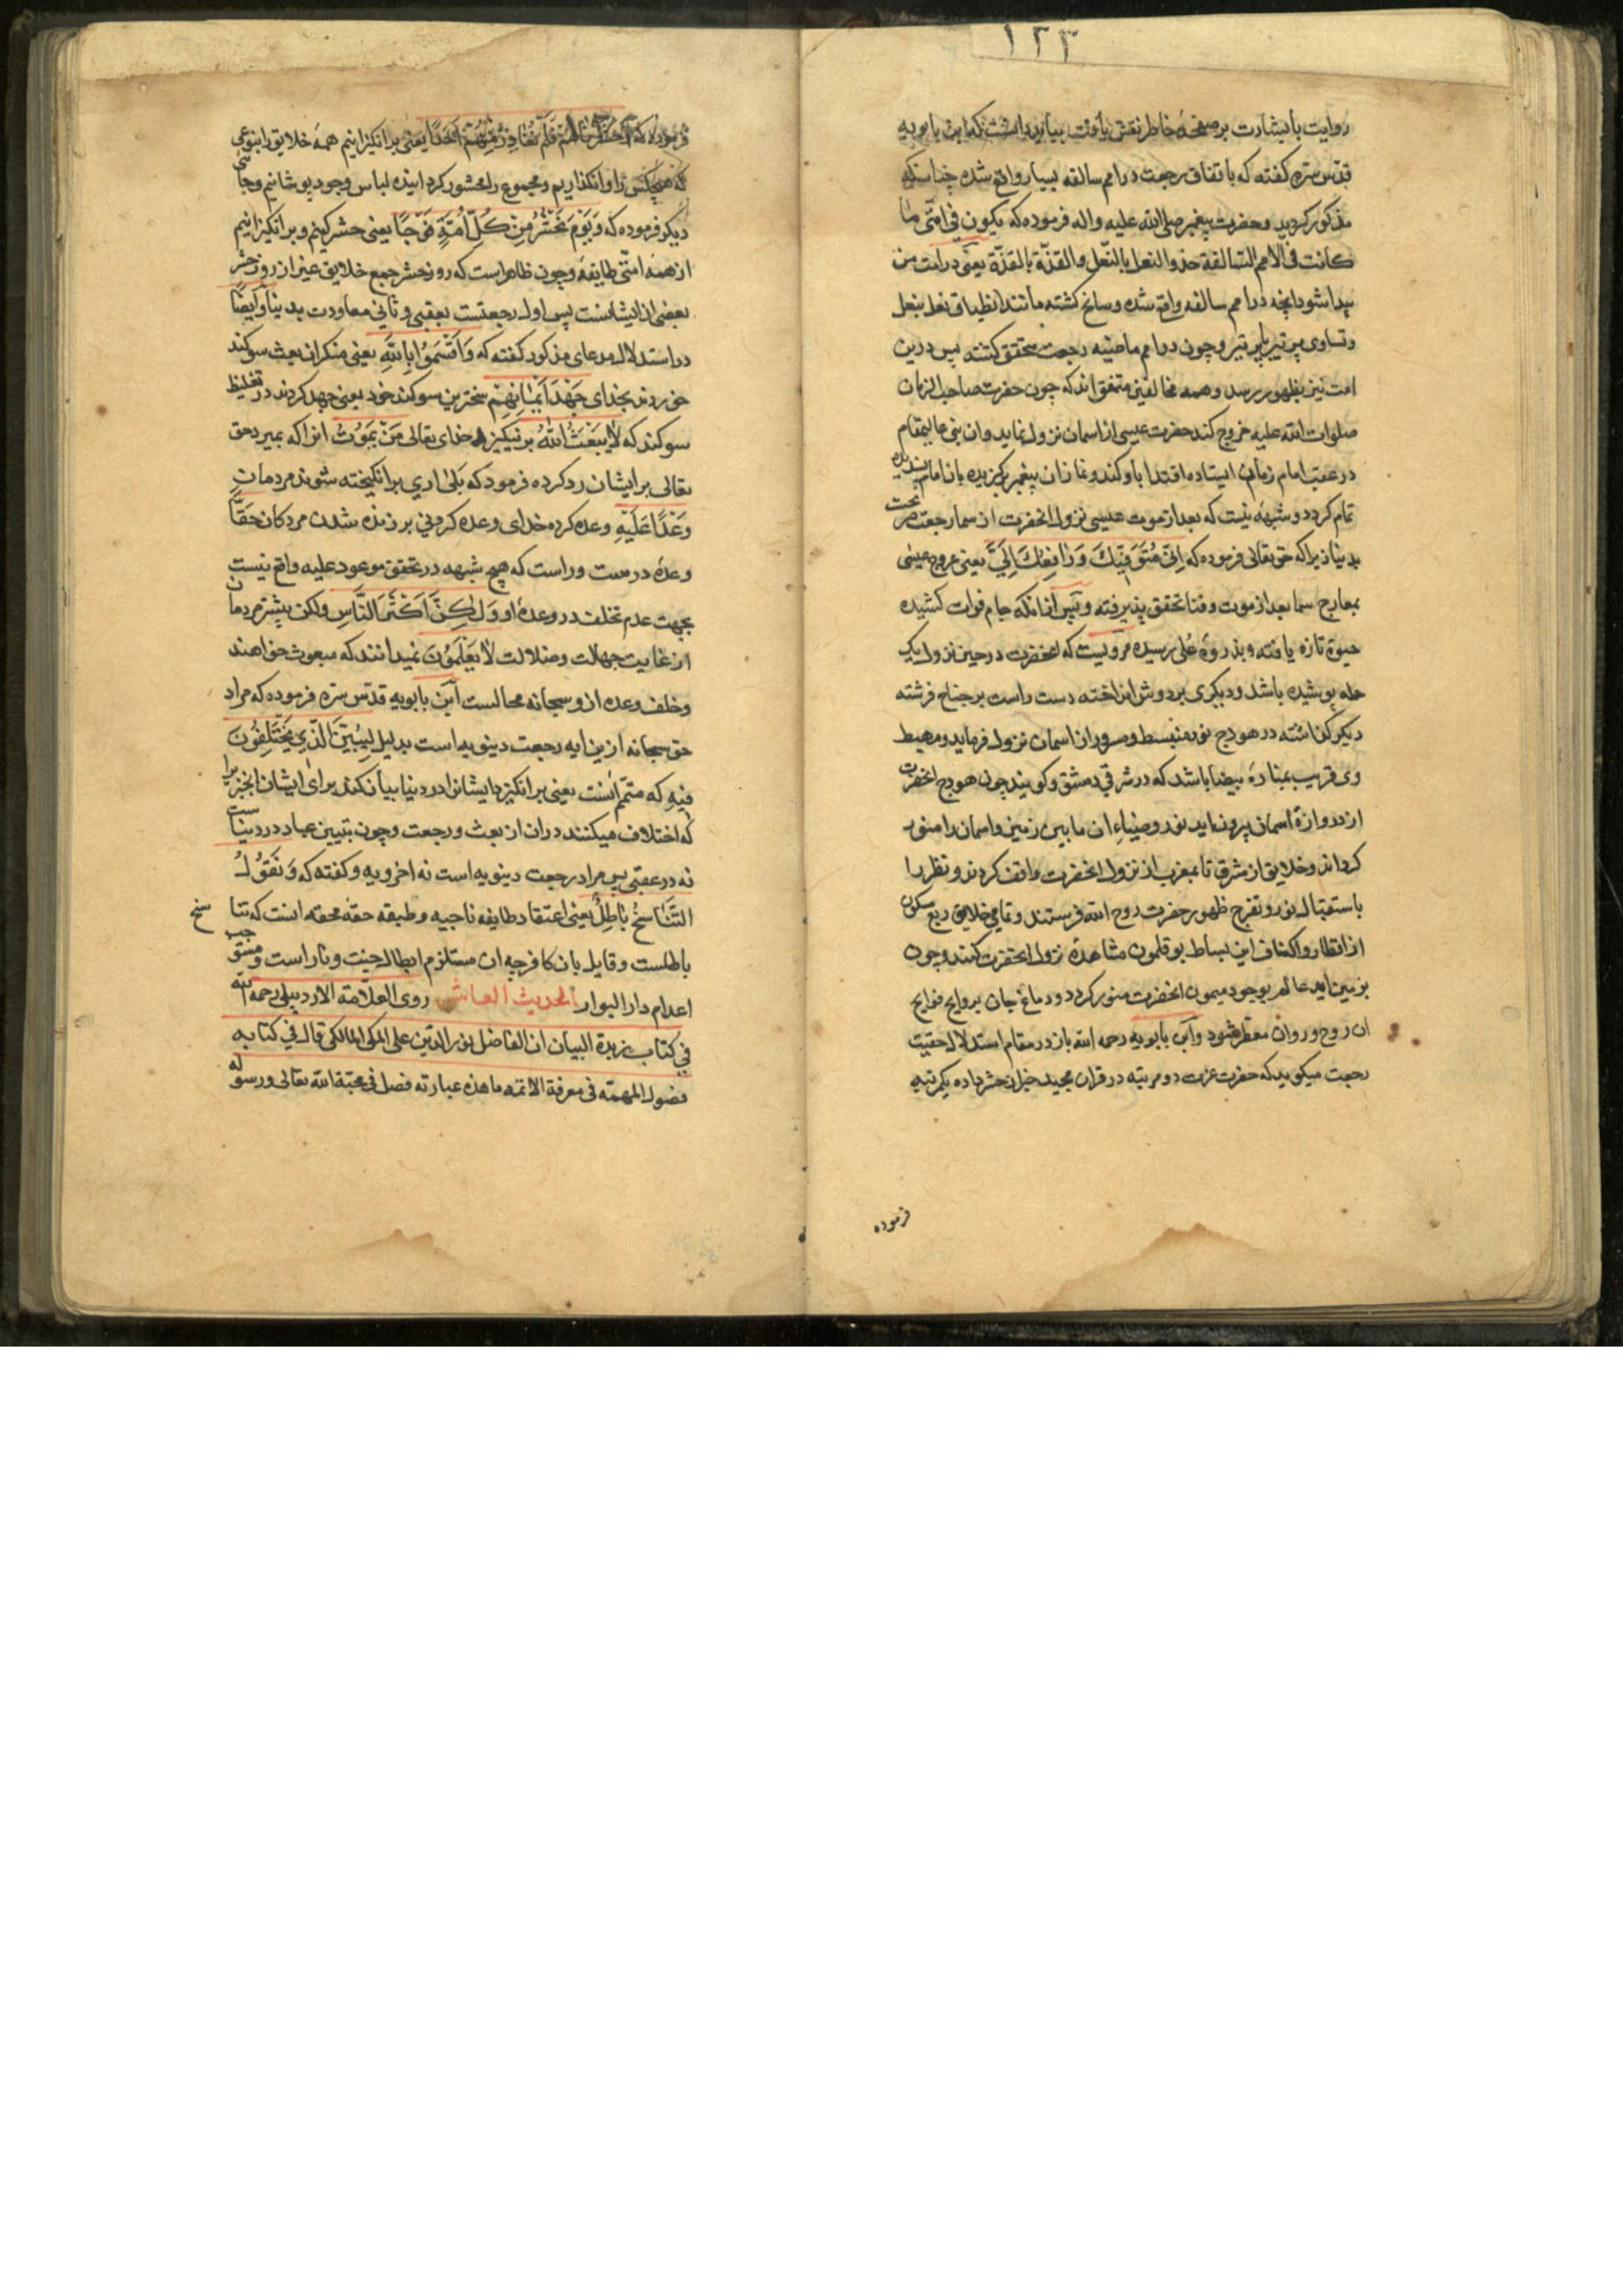 ۱۲۳
روایت بابشارت بر صفحهٔ خاطر نقش باید داشت که ابن بابویه
قدّس سرّه کفته که باتفاق رجعت در امم سالفه بسیار واقع شده چنانکه
مذکور کردید وحضرت پیغمبر صلی الله علیه واله فرموده که یکون فی امّتی ما
کانت فی الامم السّالفة حذو النعل بالنّعل والقذّة بالقذّة یعنی در امت من
پیدا شود انچه در امم سالفه واقع شده وسانح کشته مانند انطباق نعل بنعل
وتساوی پر تیر با پر تیر وچون در امم ماضیه رجعت محقق کشته پس درین
امت نیز بظهور رسد وهمه مخالفین متفق اند که چون حضرت صاحب الزمان
صلوات الله علیه خروج کند حضرت عیسی از اسمان نزول نماید وان نبی عالیمقام
در عقب امام زمان ایستاده اقتدا باو کند ونماز ان پیغمبر برکزیده بان امام پسندیده
تمام کردد وشبههٔ نیست که بعد از موت عیسی نزول انحضرت از سما رجعتست
بدنیا زیرا که حق تعالی فرموده که اِنّی مُتَوَفّیکَ وَرافِعُکَ اِلَیَّ یعنی عروج عیسی
بمعارج سما بعد از موت وفنا تحقق پذیرفته وپس از انکه جام فوات کشیده
حیوة تازه یافته وبذروهٔ عُلی رسیده مرویست که انحضرت در حین نزول یک
حله پوشیده باشد ودیکری بر دوش انداخته دست راست بر جناح فرشته
دیکر کذاشته در هودج نور منبسط ومسرور از اسمان نزول فرماید ومهبط
وی قریب بمنارهٔ بیضا باشد که در شرقی دمشق وکویند چون هودج انحضرت
از دروازهٔ اسمان بیرون اید نور وضیاء ان ما بین زمین واسمان را منور
کرداند وخلایق از مشرق تا بمغرب از نزول انحضرت واقف کردند ونظر را
باستقبال نور وتفرج ظهور حضرت روح الله فرستند وتمامی خلایق ربع مسکون
از اقطار واکناف این بساط بوقلمون مشاهدهٔ نزول انحضرت کنند وچون
بزمین اید عالم بوجود میمون انحضرت منور کردد ودماغ جان بروایح فوایح
ان روح وروان معطر شود وابن بابویه رحمه الله باز در مقام استدلال حقیت
رجعت میکوید که حضرت عزت دو مرتبه در قران مجید خبر از حشر داده یکمرتبه
فرموده
فرموده که وَحَشَرْناهُمْ فَلَمْ نُغادِرْ مِنْهُمْ اَحَدًا یعنی برانکیزانیم همهٔ خلایق را بنوعی
که هیچکس را وانکذاریم ومجموع را محشور کردانیده لباس وجود پوشانیم وجائی
دیکر فرموده که وَیَوْمَ نَحْشُرُ مِنْ کُلِّ اُمَّةٍ فَوْجًا یعنی حشر کنیم وبرانکیزانیم
از همه امتی طایفهٔ وچون ظاهر است که روز حشر جمع خلایق غیر از روز حشر
بعضی از ایشانست پس اول رجعتست بعقبی وثانی معاودت بدنیا وایضًا
در استدلال مدعای مذکور کفته که وَاَقْسَمُوا بِاللّهِ یعنی منکران بعث سوکند
خوردند بخدای جَهْدَ اَیْمانِهِمْ سخترین سوکند خود یعنی جهد کردند در تغلیظ
سوکند که لا یَبْعَثُ اللّهُ برنیکیزد خدای تعالی مَنْ یَمُوتُ انرا که بمیرد حق
تعالی بر ایشان رد کرده فرمود که بَلی اری برانکیخته شوند مردمان
وَعْدًا عَلَیْهِ وعده کرده خدای وعده کردنی بر زنده شدن مردکان حَقًّا
وعدهٔ درست وراست که هیچ شبهه در تحقق موعود علیه واقع نیست
بجهت عدم تخلف در وعدهٔ او وَلکِنَّ اَکْثَرَ النّاسِ ولکن بیشتر مردمان
از غایت جهالت وضلالت لا یَعْلَمُونَ نمیدانند که مبعوث خواهند
وخلف وعده از و سبحانه محالست ابن بابویه قدّس سرّه فرموده که مراد
حق سبحانه ازین ایه رجعت دینویه است بدلیل لِیُبَیِّنَ الَّذِی یَخْتَلِفُونَ
فِیهِ که متمّم انست یعنی برانکیزد ایشانرا در دنیا تا بیان کند برای ایشان انچیز را
که اختلاف میکنند دران از بعث ورجعت وچون تبیین عباد در دنیاست
نه در عقبی پس مراد رجعت دینویه است نه اخرویه وکفته که وَنَقُولُ
التَّناسُخُ باطِلٌ یعنی اعتقاد طایفه ناجیه وطبقه حقهٔ محقه انست که تناسخ
باطلست وقایل بان کافر چه ان مستلزم ابطال جنت ونار است ومستوجب
اعدام دار البوار الحدیث العاشر روی العلّامة الاردبیلی رحمه الله
فی کتاب زبدة البیان ان الفاضل نور الدّین علی المکی المالکی قال فی کتابه
فصول المهمّه فی معرفة الائمه ما هذه عبارته فصل فی محبّة الله تعالی ورسوله